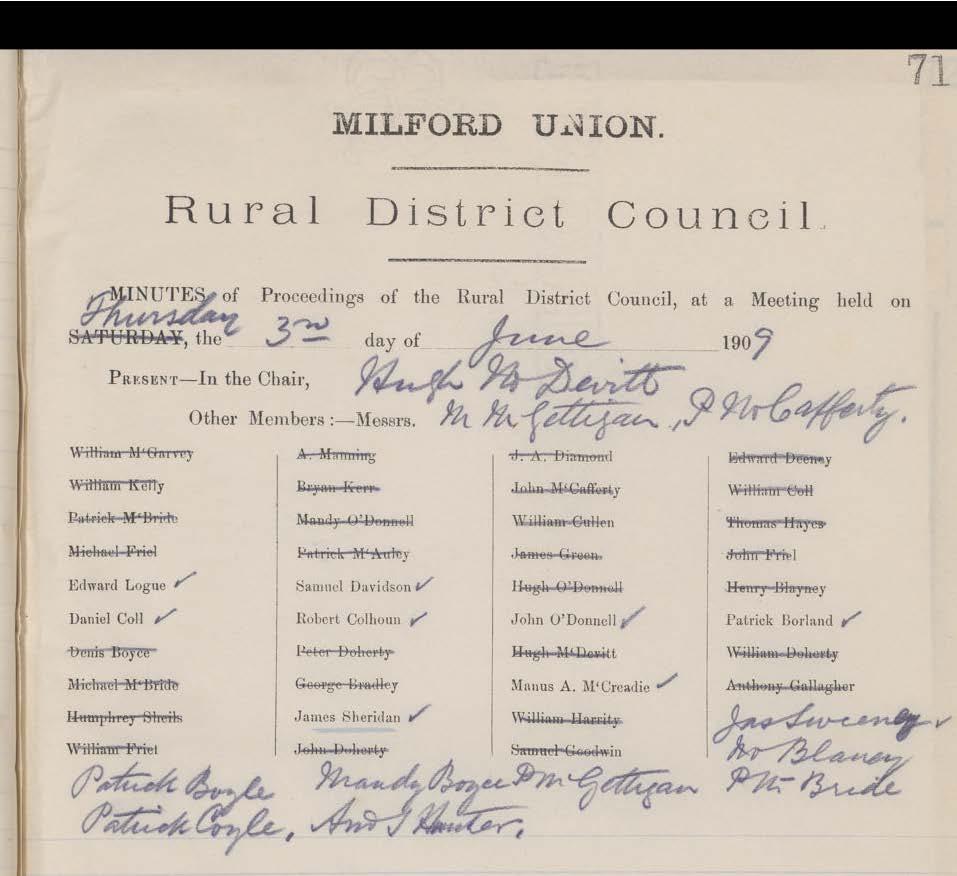 71
MILFORD UNION.
Rural District Council.
MINUTES of Proceedings of the Rural District Council, at a Meeting held on
Thursday
SATURDAY, the 3rd day of June 1909
PRESENT—In the Chair, Hugh McDevitt
Other Members :—Messrs. M McGettigan, P McCafferty.
William M‘Garvey
William Kelly
Patrick M‘Bride
Michael Friel
Edward Logue ✓
Daniel Coll ✓
Denis Boyce
Michael M‘Bride
Humphrey Sheils
William Friel
A. Manning
Bryan Kerr
Mandy O’Donnell
Patrick M‘Auley
Samuel Davidson ✓
Robert Colhoun ✓
Peter Doherty
George Bradley
James Sheridan ✓
John Doherty
J. A. Diamond
John M‘Cafferty
William Cullen
James Green
Hugh O’Donnell
John O’Donnell ✓
Hugh M‘Devitt
Manus A. M‘Creadie ✓
William Harrity
Samuel Goodwin
Edward Deeney
William Coll
Thomas Hayes
John Friel
Henry Blayney
Patrick Borland ✓
William Doherty
Anthony Gallagher
Jas Sweeney ✓
Blaney
Patrick Boyle Mandy Boyce P McGettigan P McBride
Patrick Coyle, And Hunter.